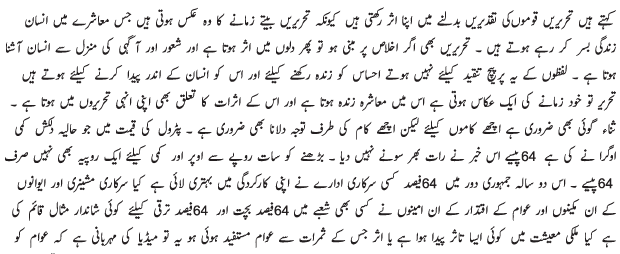 کہتے ہیں تحریریں قوموں کی تقدیریں بدلنے میں اپنا اثر رکھتی ہیں کیونکہ تحریریں بیتے زمانے کا وہ عکس ہوتی ہیں جس معاشرے میں انسان
زندگی بسر کر رہے ہوتے ہیں ۔ تحریریں بھی اگر اخلاص پر مبنی ہو تو پھر دلوں میں اثر ہوتا ہے اور شعور اور آگہی کی منزل سے انسان آشنا
ہوتا ہے ۔ لفظوں کے یہ پرپیچ تنقید کیلئے نہیں ہوتے احساس کو زندہ رکھنے کیلئے اور اس کو انسان کے اندر پیدا کرنے کیلئے ہوتے ہیں
تحریر تو خود زمانے کی ایک عکاس ہوتی ہے اس میں معاشرہ زندہ ہوتا ہے اور اس کے اثرات کا تعلق بھی اپنی انہی تحریروں میں ہوتا ہے ۔
ثناء گوئی بھی ضروری ہے اچھے کاموں کیلئے لیکن اچھے کام کی طرف توجہ دلانا بھی ضروری ہے ۔ پٹرول کی قیمت میں جو حالیہ دلکش کمی
اوگرا نے کی ہے 64پیسے اس خبر نے رات بھر سونے نہیں دیا ۔ بڑھنے کو سات روپے سے اوپر اور کمی کیلئے ایک روپیہ بھی نہیں صرف
64پیسے ۔ اس دو سالہ جمہوری دور میں 64فیصد کسی سرکاری ادارے نے اپنی کارکردگی میں بہتری لائی ہے کیا سرکاری مشینری اور ایوانوں
کے ان مکینوں اور عوام کے اقتدار کے ان امینوں نے کسی بھی شعبے میں 64فیصد بچت اور 64فیصد ترقی کیلئے کوئی شاندار مثال قائم کی
ہے کیا ملکی معیشت میں کوئی ایسا تاثر پیدا ہوا ہے یا اثر جس کے ثمرات سے عوام مستفید ہوئی ہو یہ تو میڈیا کی مہربانی ہے کہ عوام کو